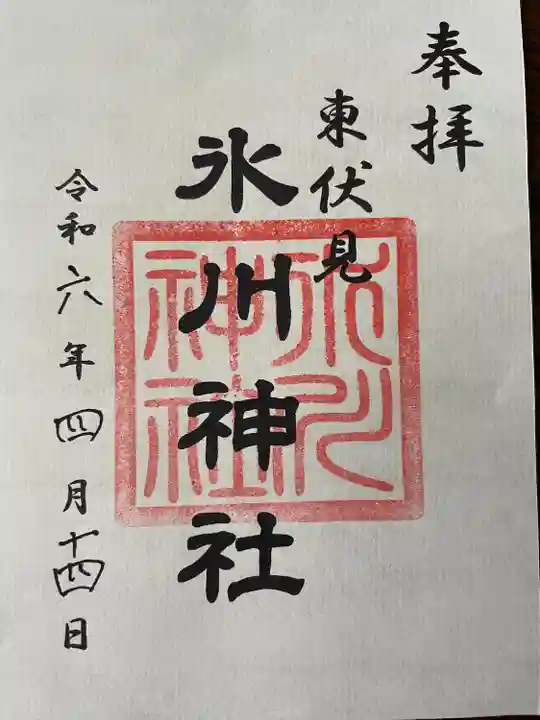 奉拝
東伏見
氷川神社
氷川
神社
令和六年四月十四日